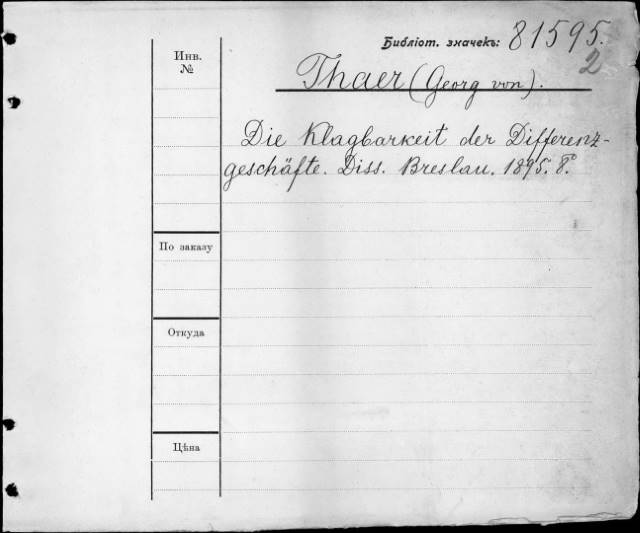 Библіот. значекъ: 81595.
2
Инв.
№
Thaer (Georg von).
Die Klagbarkeit der Differenz-
geschäfte. Diss. Breslau. 1895. 8º.
По заказу
Откуда
Цѣна